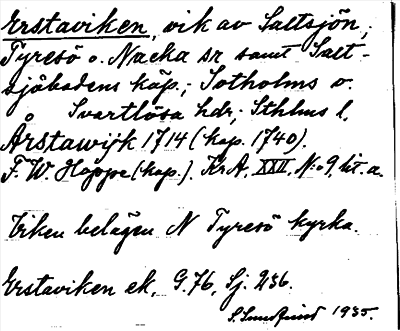 Erstaviken, vik av Saltsjön,
Tyresö o. Nacka sr samt Salt-
sjöbadens köp.; Sotholms o.
o Svartlösa hdr; Sthlms l.
Årstawijk 1714 (kop. 1740).
F. W. Hoppe (kop.). Kr.A. XXII, No 9, lit. a.
Viken belägen N Tyresö kyrka.
Erstaviken ek, G.76, Sj. 236.
S. 1935.